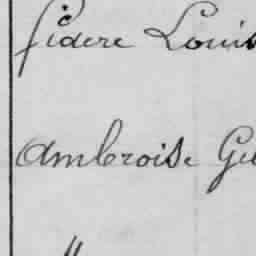 fidere Louis
Ambroise Gu
"